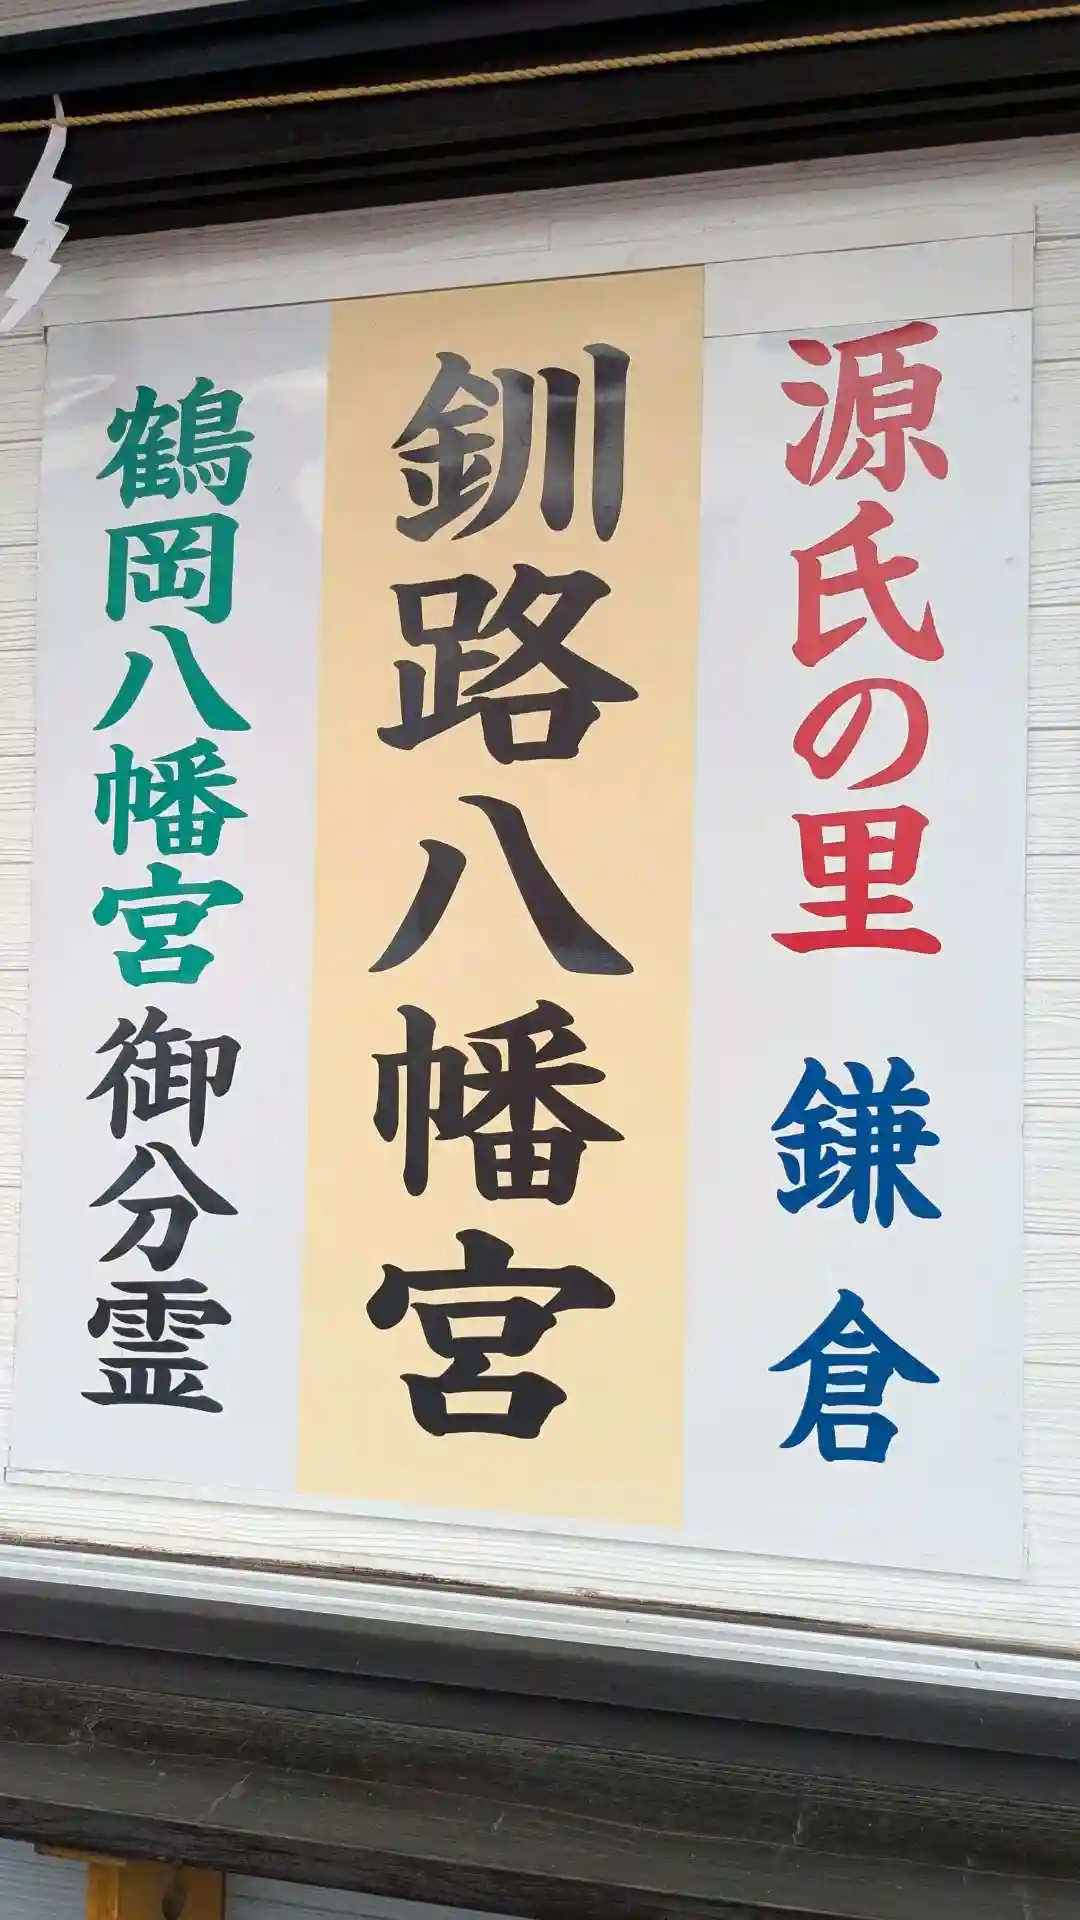 源氏の里 鎌倉
釧路八幡宮
鶴岡八幡宮御分霊